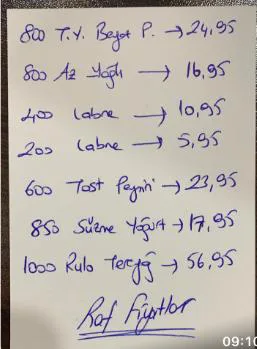 800 T.Y. Beyaz P. → 24,95
800 Az Yağlı → 16,95
400 Labne → 10,95
200 Labne → 5,95
600 Tost Peyniri → 23,95
850 Süzme Yoğurt → 17,95
1000 Rulo Tereyağ → 56,95
Raf Fiyatları
09:10